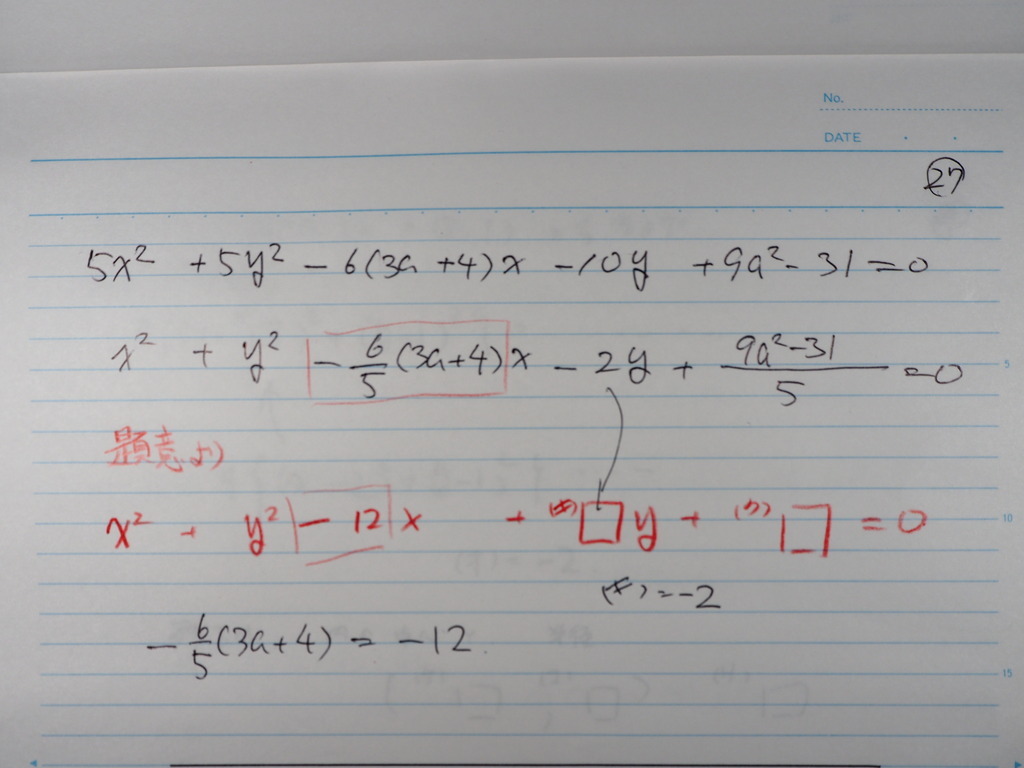 No.
DATE
27
5x² + 5y² - 6(3a+4)x - 10y + 9a² - 31 = 0
x² + y² - 6/5 (3a+4)x - 2y + (9a² - 31)/5 = 0
5
題意より
x² + y² - 12x + (キ)□y + (ク)□ = 0
10
(キ) = -2
- 6/5 (3a+4) = -12.
15